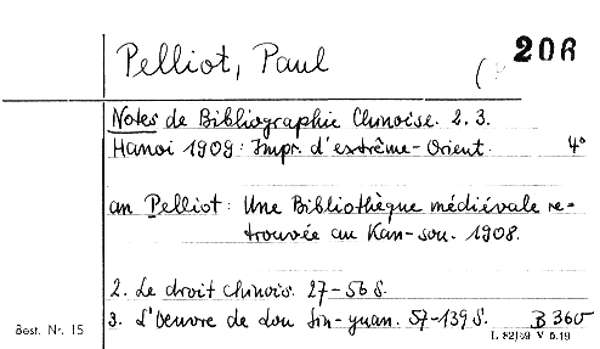 Pelliot, Paul
206
Notes de Bibliographie Chinoise. 2. 3.
Hanoi 1909: Impr. d'extrême-Orient. 4°
an Pelliot: Une Bibliothèque médiévale re-
trouvée au Kan-sou. 1908.
2. Le droit chinois. 27-56 S.
3. L'Oeuvre de Lou Sin-yuan. 57-139 S. B 360
Best. Nr. 15
L 82/69 V 5.19